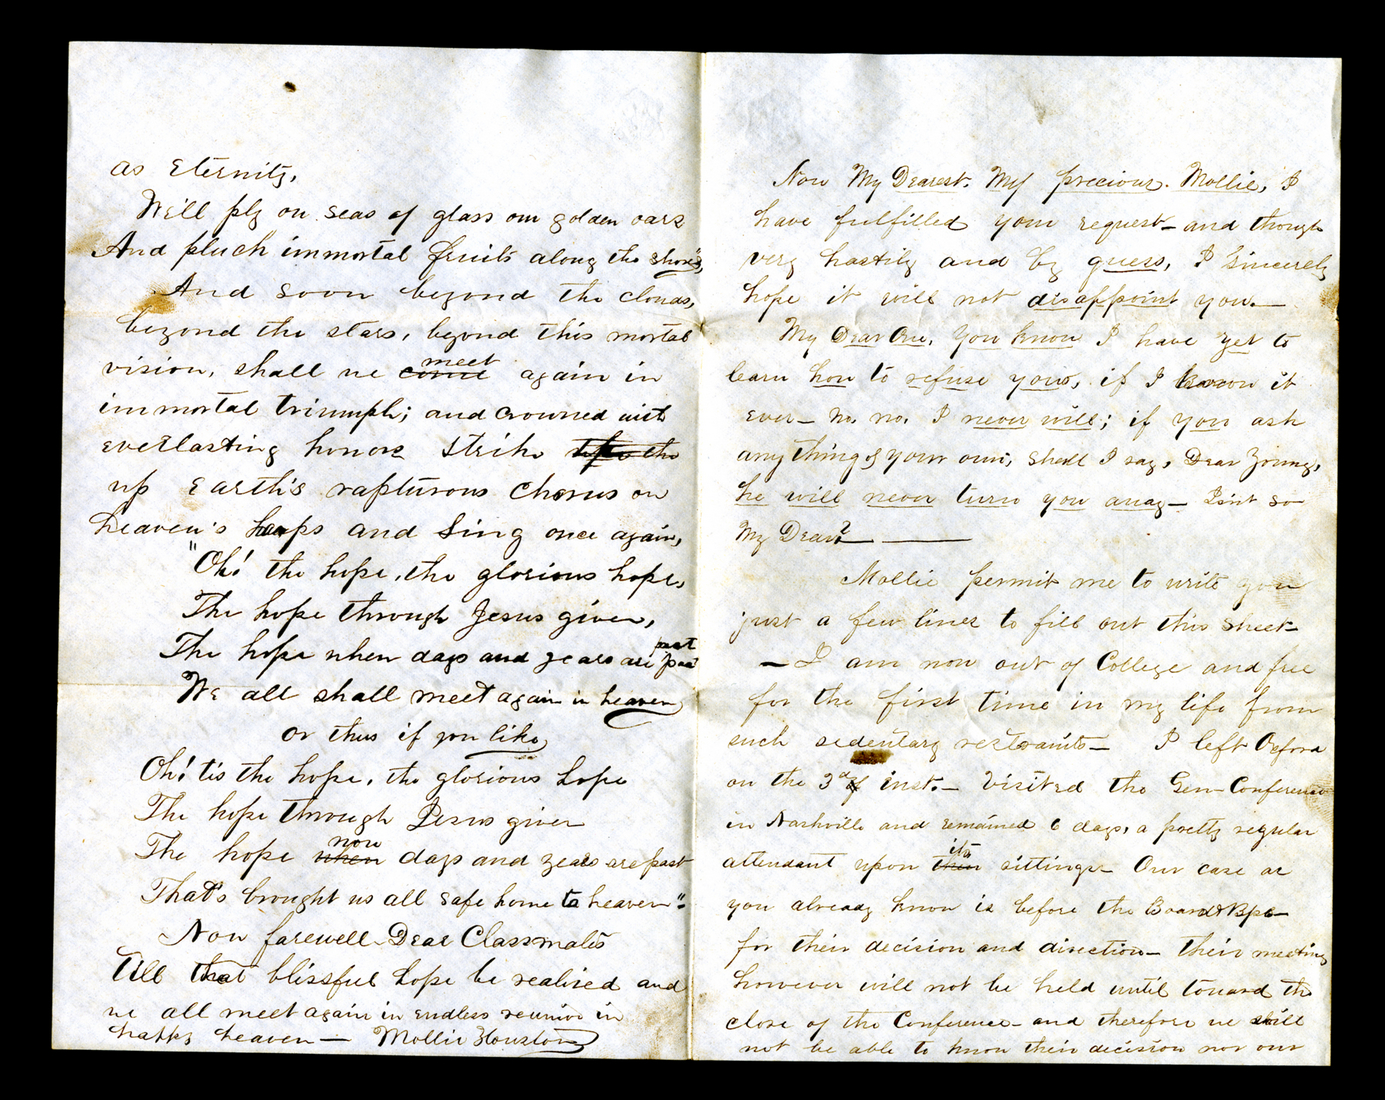 as Eternity,
We'll ply on seas of glass our golden oars
And pluck immortal fruits along the shores,
And soon beyond the clouds,
beyond the stars, beyond this mortal
vision, shall we come meet again in
immortal triumph; and crowned with
everlasting honors strike up the
up Earth's rapturous chorus on
heaven's harps and Sing once again,
"Oh! the hope, the glorious hope,
The hope through Jesus given,
The hope when days and years are past past
We all shall meet again in heaven
or thus if you like,
Oh! tis the hope, the glorious hope
The hope through Jesus given
The hope when now days and years are past
That's brought us all safe home to heaven"
Now farewell Dear Classmates
Till that blissful hope be realized and
we all meet again in Endless reunion in
happy heaven— Mollie Houston
Now My Dearest. My precious. Mollie, I
have fulfilled your request—and though
very hastily and by guess, I Sincerely
hope it will not disappoint you.—
My Dear One, You know I have yet to
learn how to refuse you, if I know it
ever— No, no, I never will; if you ask
anything of your own, shall I say, Dear Young,
he will never turn you away— Isn't so
My Dear? ———
Mollie permit me to write you
just a few lines to fill out this sheet—
— I am now out of College and free
for the first time in my life from
such sedentary restraints— I left Oxford
on the 3rd of inst.— Visited the Gen—Conference
in Nashville and remained 6 days, a pretty regular
attendant upon their its sittings— Our case as
you already know is before the Board & Bps—
for their decision and direction— their meeting
however will not be held until toward the
close of the Conference—and therefore we shill
not be able to know their decision nor our